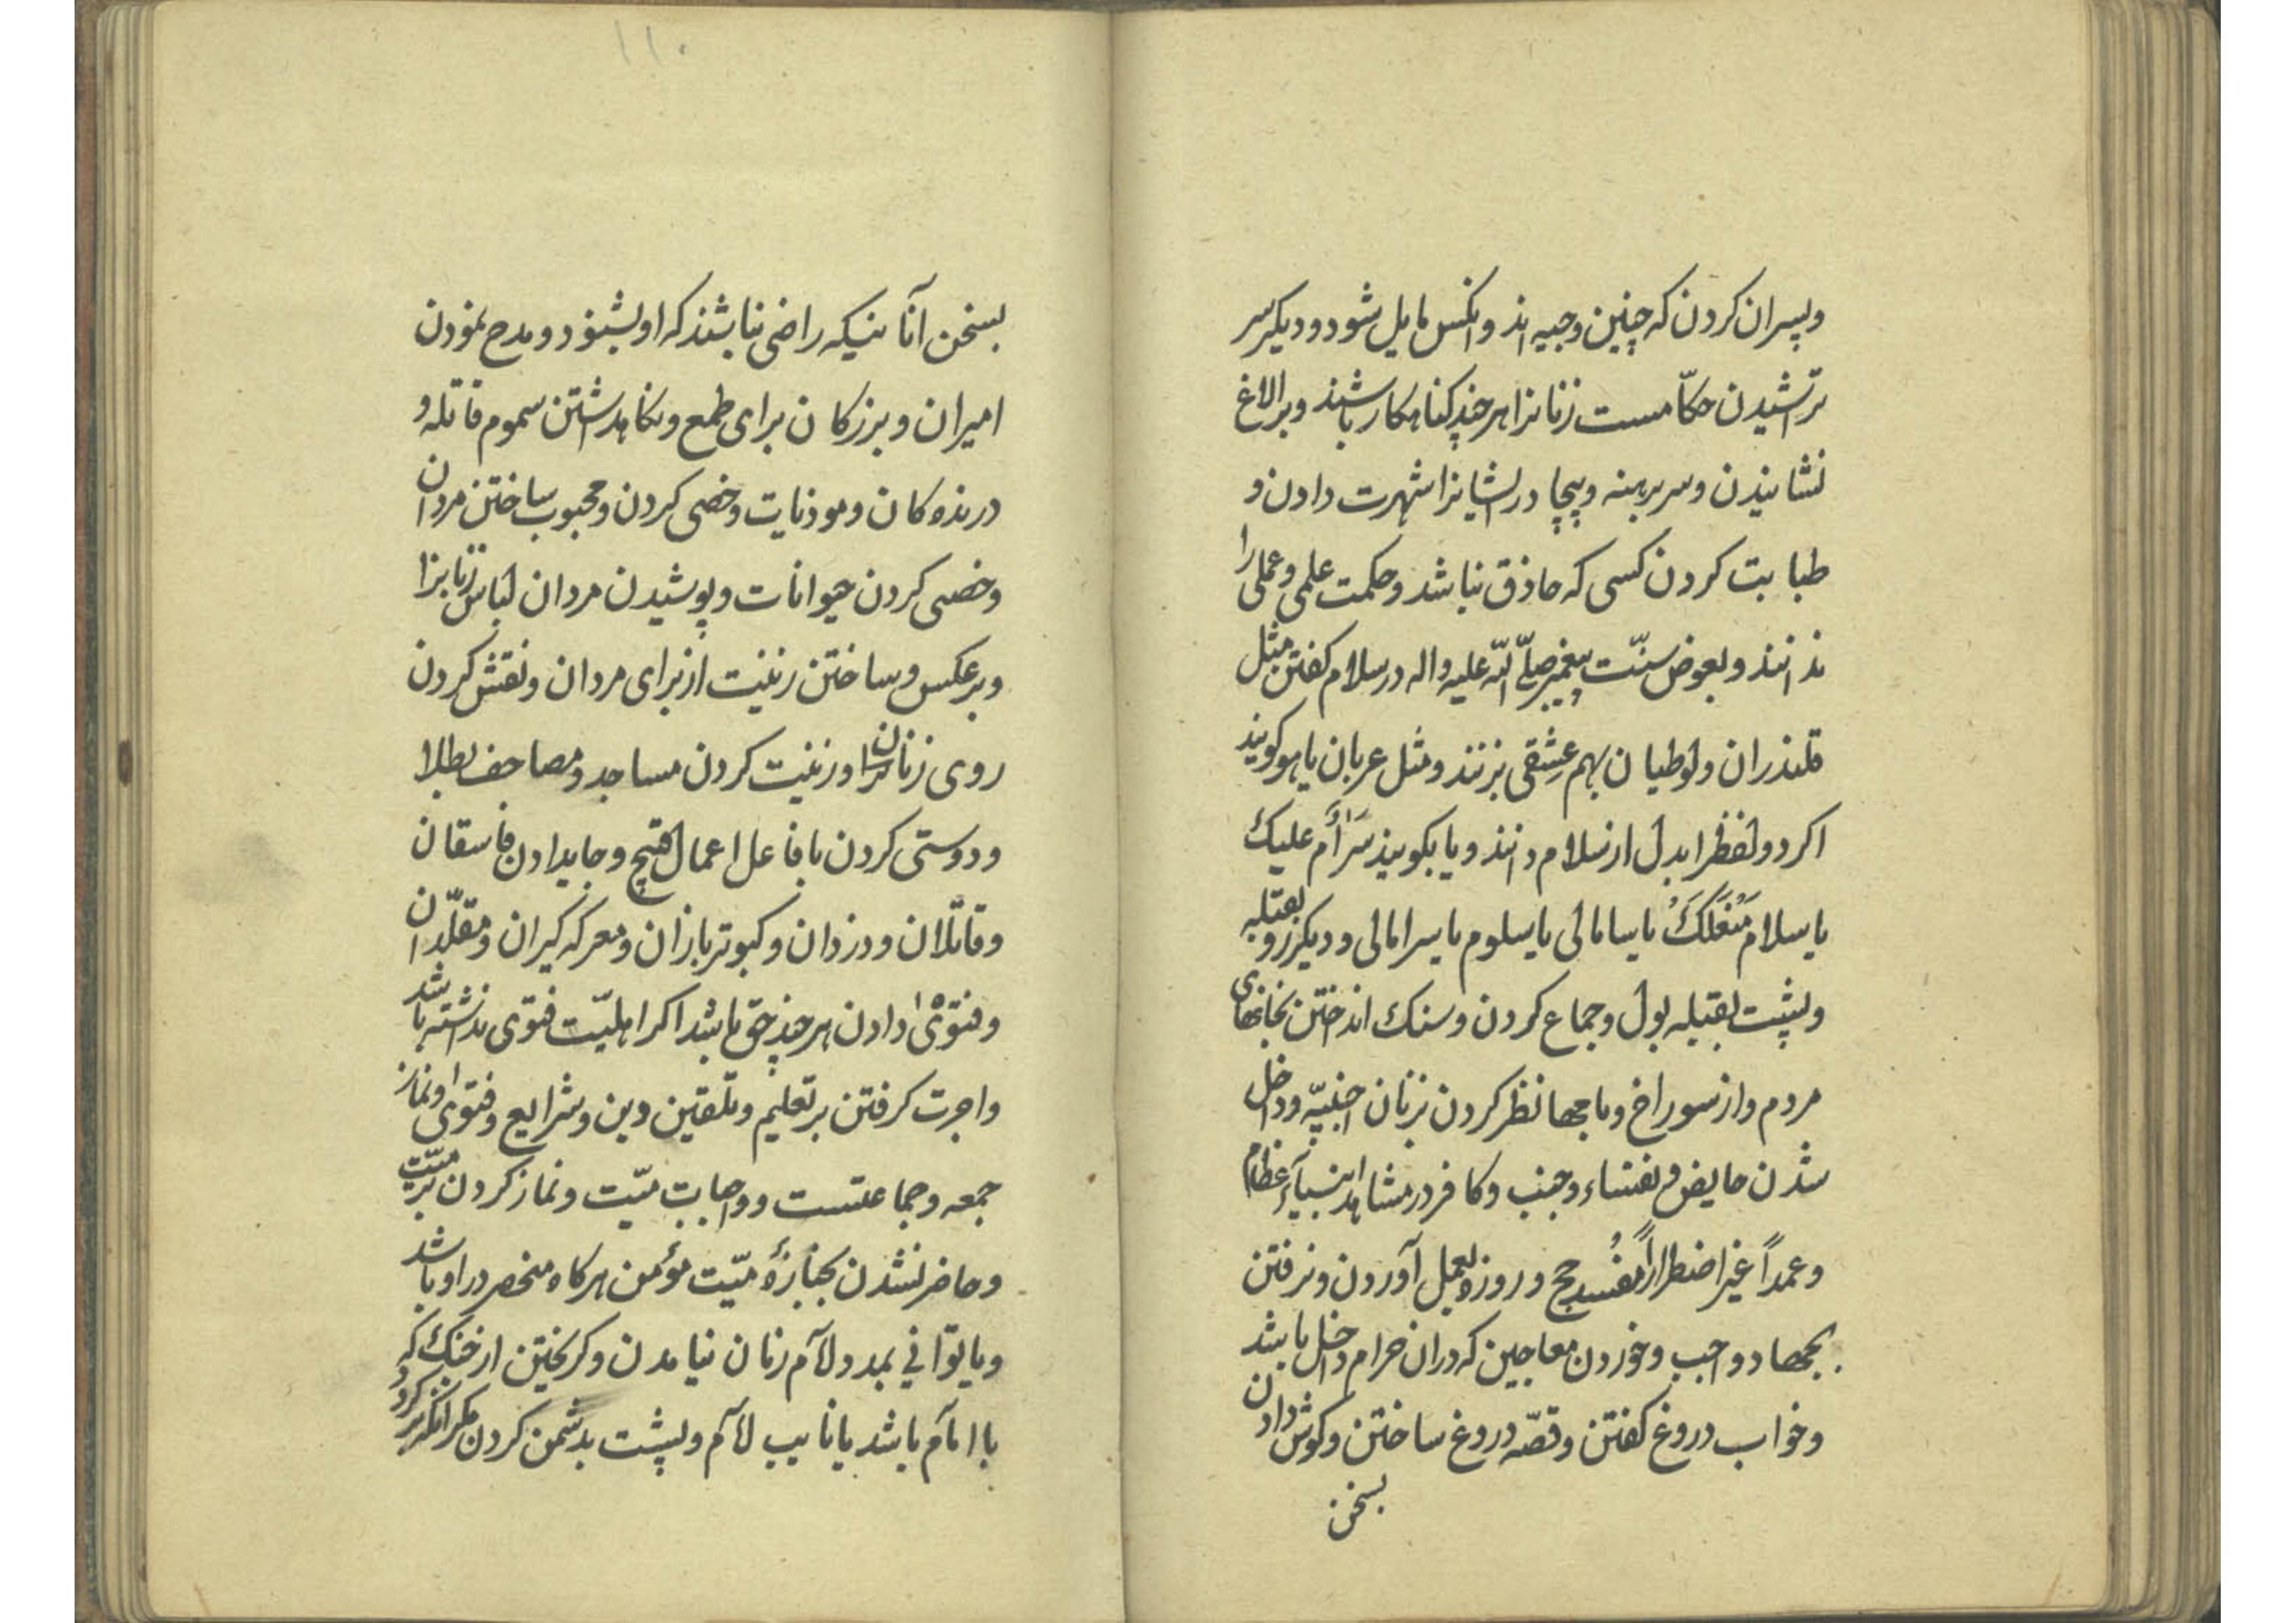 وپسران کردن که چنین وجیه اند وانکس مایل شود ودیکر سر
تراشیدن حکّامست زنانرا هرچند کناهکار باشند وبر الاغ
نشانیدن وسر برهنه وبیچادر ایشانرا شهرت دادن و
طبابت کردن کسی که حاذق نباشد وحکمت علمی وعملی را
نداند وبعوض سنّت پیغمبر صلّی الله علیه واله در سلام کفتن مثل
قلندران ولوطیان بهم عشقی بزنند ومثل عربان یاهو کویند
اکر دو لفظ را بدل از سلام دانند ویا بکویند سَرٰأَم علیك
یا سلام مَنْعَلَكَ یا سامالی یا سلوم یا سرامالی ودیکر رو بقبله
وپشت بقبله بول وجماع کردن وسنك انداختن بخانهای
مردم واز سوراخ وبامها نظر کردن بزنان اجنبیّه وداخل
شدن حایض ونفساء وجنب وکافر در مشاهد انبیآء عظام
وعمداً غیر اضطراراً مُفسد حج وروزه بعمل آوردن ونرفتن
بجهاد واجب وخوردن معاجین که دران حرام داخل باشد
وخواب دروغ کفتن وقصّه دروغ ساختن وکوش دادن
بسخن
۱۱۰
بسخن آنانیکه راضی نباشند که او بشنود ومدح نمودن
امیران وبزرکان برای طمع ونکاهداشتن سموم قاتله و
درنده کان وموذیات وخصی کردن ومجبوب ساختن مردان
وخصی کردن حیوانات وپوشیدن مردان لباس زنانرا
وبرعکس وساختن زینت از برای مردان ونقش کردن
روی زنانرا وزینت کردن مساجد ومصاحف بطلا
ودوستی کردن با فاعل اعمال قبیح وجا بدادن فاسقان
وقاتلان ودزدان وکبوتر بازان ومعرکه کیران ومقلّدان
وفتوٰی دادن هرچند حق باشد اکر اهلیّت فتوی نداشته باشد
واجرت کرفتن بر تعلیم وتلقین دین وشرایع وفتوٰی ونماز
جمعه وجماعتست وواجبات میّت ونماز کردن بر میّت
وحاضر نشدن بجنازهٔ میّت مؤمن هرکاه منحصر در او باشد
ویا توانی بمدد لآم زنان نیامدن وکریختن از جنك که
با امآم باشد یا نایب لآم وپشت بدشمن کردن مکر انکه